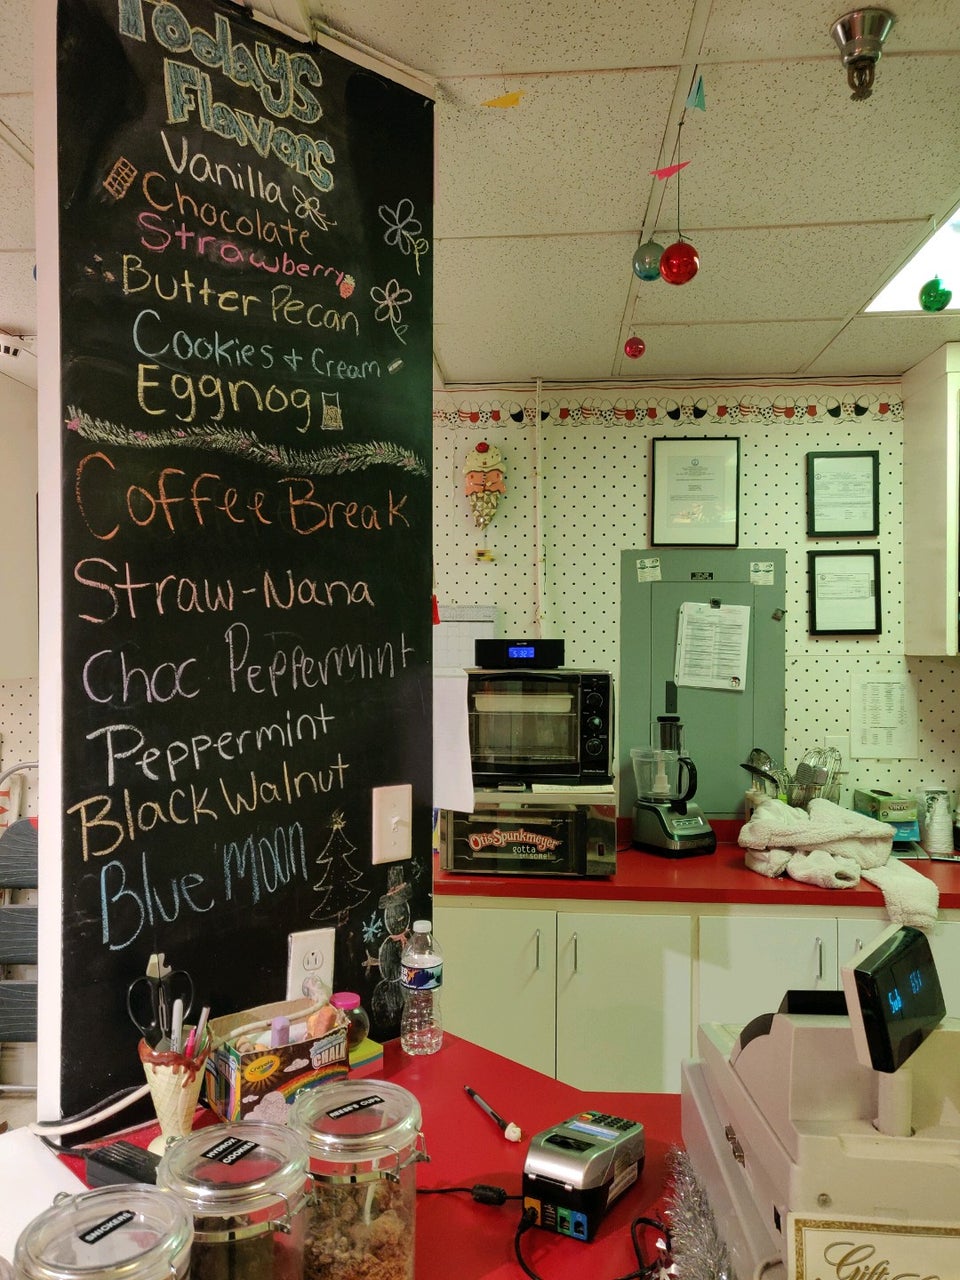 Todays
Flavors
Vanilla
Chocolate
Strawberry
Butter Pecan
Cookies + Cream
Eggnog
Coffee Break
Straw-Nana
Choc Peppermint
Peppermint
Black Walnut
Blue moon
5:32
Otis Spunkmeyer
gotta
Crayola
CHALK
REESE'S CUPS
HYDROX
COOKIES
SNICKERS
Gift